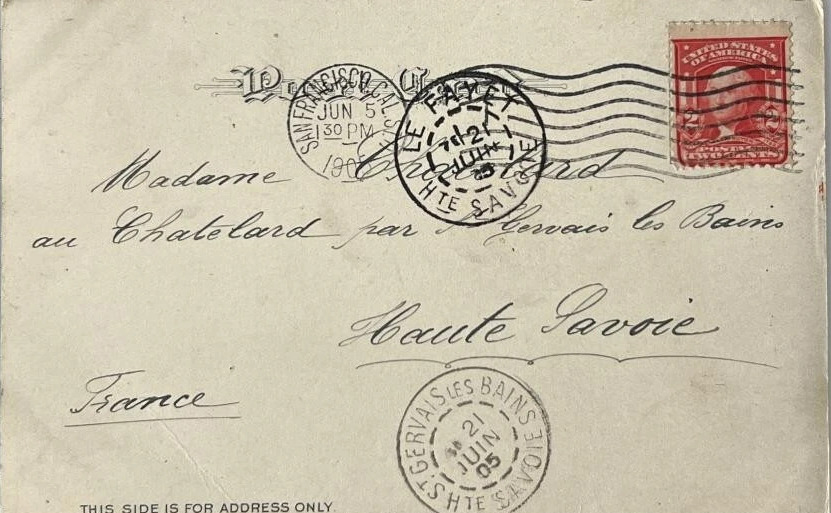 Postal Card
UNITED STATES
OF AMERICA
2 2
POSTAGE
TWO CENTS
SAN FRANCISCO, CAL.
JUN 5
130 PM
LE FAYET
21
JUIN
05
HTE SAVOIE
Madame
au Chatelard par St Gervais les Bains
Haute Savoie
France
ST. GERVAIS LES BAINS
21
JUIN
05
HTE SAVOIE
THIS SIDE IS FOR ADDRESS ONLY